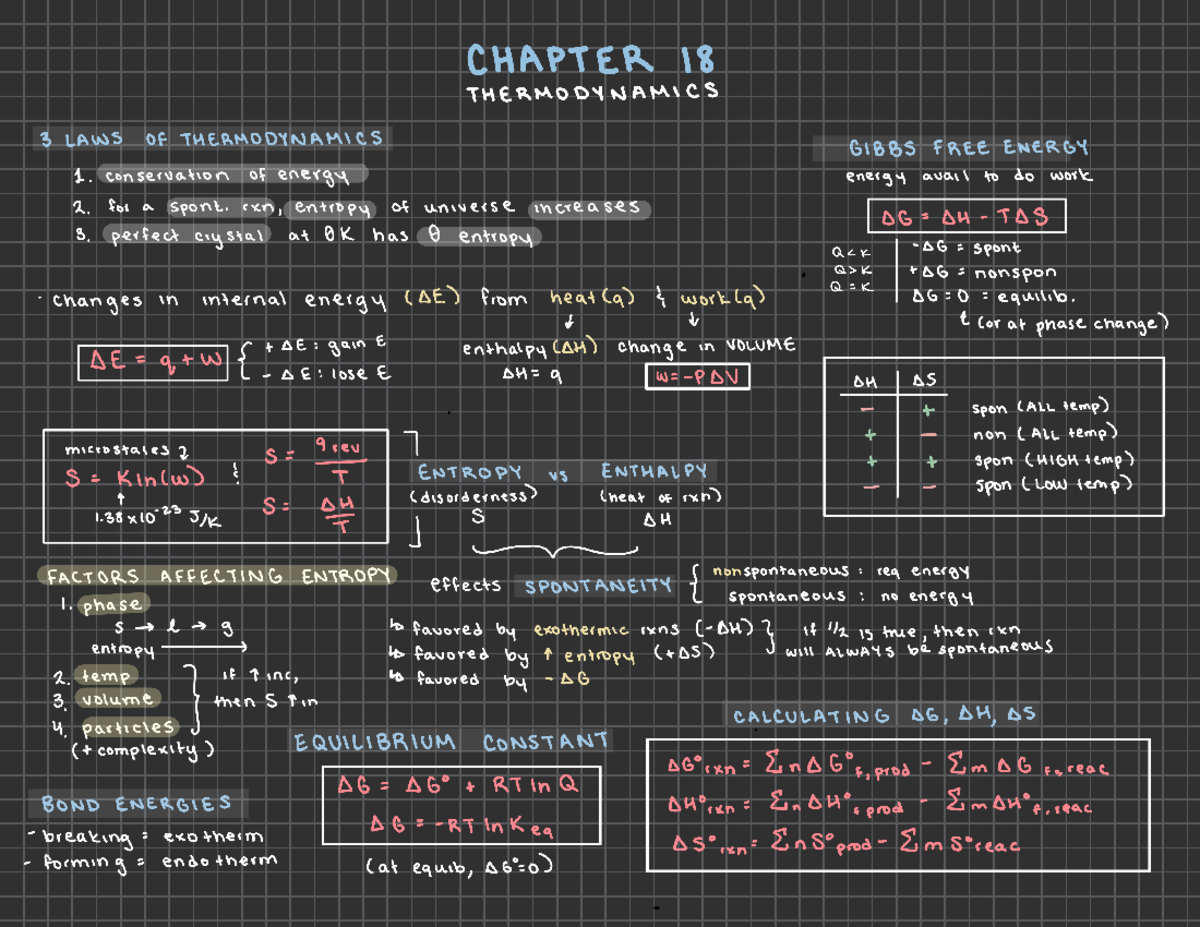 CHAPTER 18
THERMODYNAMICS
3 LAWS OF THERMODYNAMICS
1. conservation of energy
2. for a spont. rxn, entropy of universe increases
3. perfect crystal at 0K has 0 entropy
· changes in internal energy (ΔE) from heat(q) & work(q)
ΔE = q + w
+ ΔE : gain E
- ΔE : lose E
enthalpy (ΔH)
ΔH = q
change in VOLUME
w = -PΔV
GIBBS FREE ENERGY
energy avail to do work
ΔG = ΔH - TΔS
Q < K -ΔG = spont
Q > K +ΔG = nonspon
Q = K ΔG = 0 = equilib.
(or at phase change)
ΔH ΔS
- + spon (ALL temp)
+ - non (ALL temp)
+ + spon (HIGH temp)
- - spon (LOW temp)
microstates
S = K ln(w) & S = q rev / T
1.38 x 10^-23 J/K
S = ΔH / T
ENTROPY vs ENTHALPY
(disorderness) (heat of rxn)
S ΔH
effects SPONTANEITY
nonspontaneous : req energy
spontaneous : no energy
↳ favored by exothermic rxns (-ΔH)
↳ favored by ↑ entropy (+ΔS)
↳ favored by -ΔG
if 1/2 is true, then rxn
will ALWAYS be spontaneous
FACTORS AFFECTING ENTROPY
1. phase
s → l → g
entropy →
2. temp
3. volume
4. particles
(+ complexity)
if ↑ inc,
then S ↑ in
BOND ENERGIES
- breaking = exotherm
- forming = endotherm
EQUILIBRIUM CONSTANT
ΔG = ΔG° + RT ln Q
ΔG = -RT ln K eq
(at equib, ΔG°=0)
CALCULATING ΔG, ΔH, ΔS
ΔG°rxn = ΣnΔG°f,prod - ΣmΔG f,reac
ΔH°rxn = ΣnΔH°f,prod - ΣmΔH°f,reac
ΔS°rxn = ΣnS°prod - ΣmS°reac